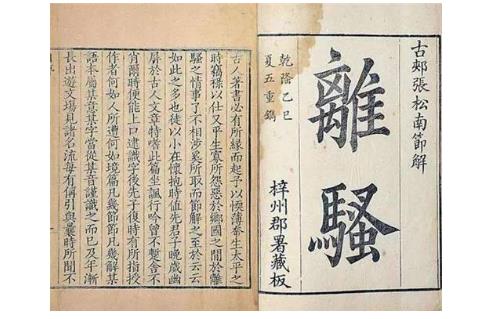 古郟張松南節解
離騷
乾隆乙巳
夏五重鐫
梓州郡署藏板
古人著書必有所緣而起予以愞薄奉生太平之
時竊祿以仕又半生寡所怨惡於鄉國之間於離
騷之情事了不相涉奚所取而節解之至於云云
如此之多也徒以小在懷抱時值先君子晚歲幽
屏於古人文章特嗜此篇坐諷行吟曾不蹔舍不
肖爾時便能上口逮識字後先子復時有所指授
作者何如人所遭何如境篇凡幾節節凡幾解某
語本屬某意某字當從某音謹識之而已及年漸
長出遊文場見諸名流每有稱引與曩時所聞不